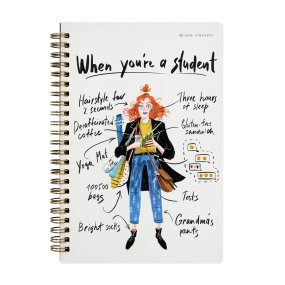 bruno visconti
When you're a student
Hairstyle for
2 seconds
Three hours
of sleep
Decaffeinated
coffee
Gluten-free
sandwich
Yoga Mat
100500
bags
Tests
Bright socks
Grandma's
pants